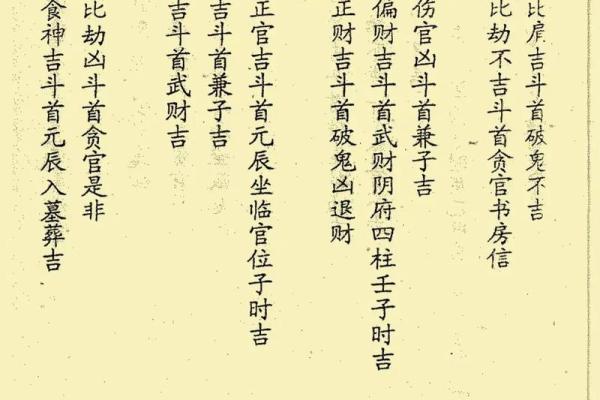 比肩吉斗首破鬼不吉
比劫不吉斗首贪官书房信
伤官凶斗首兼子吉
偏财吉斗首武财阴府四柱壬子时吉
正财吉斗首破鬼凶退财
正官吉斗首元辰坐临官位子时吉
吉斗首兼子吉
吉斗首武财吉
比劫凶斗首贪官是非
食神吉斗首元辰入墓葬吉